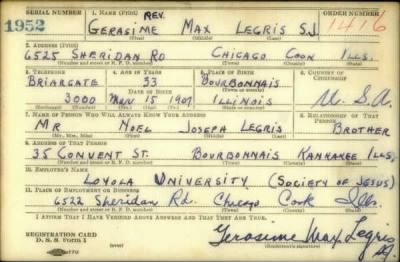 SERIAL NUMBER 1. NAME (Print) REV. ORDER NUMBER
1952 GERASIME MAX LEGRIS S.J. 1416
(First) (Middle) (Last)
2. ADDRESS (Print)
6525 SHERIDAN RD CHICAGO COOK ILLS.
(Number and street or R. F. D. number) (Town) (County) (State)
3. TELEPHONE 4. AGE IN YEARS 5. PLACE OF BIRTH 6. COUNTRY OF CITIZENSHIP
BRIARGATE 33 BOURBONNAIS
DATE OF BIRTH (Town or county)
3000 MAR 15 1907 ILLINOIS U.S.A.
(Exchange) (Number) (Mo.) (Day) (Yr.) (State or country)
7. NAME OF PERSON WHO WILL ALWAYS KNOW YOUR ADDRESS 8. RELATIONSHIP OF THAT PERSON
MR NOEL JOSEPH LEGRIS BROTHER
(Mr., Mrs., Miss) (First) (Middle) (Last)
9. ADDRESS OF THAT PERSON
35 CONVENT ST. BOURBONNAIS KANKAKEE ILLS.
(Number and street or R. F. D. number) (Town) (County) (State)
10. EMPLOYER'S NAME
LOYOLA UNIVERSITY (SOCIETY OF JESUS)
11. PLACE OF EMPLOYMENT OR BUSINESS
6522 Sheridan Rd. Chicago Cook Ills.
(Number and street or R. F. D. number) (Town) (County) (State)
I AFFIRM THAT I HAVE VERIFIED ABOVE ANSWERS AND THAT THEY ARE TRUE.
REGISTRATION CARD
D. S. S. Form 1 Gerasime Max Legris S.J.
(Registrant's signature)